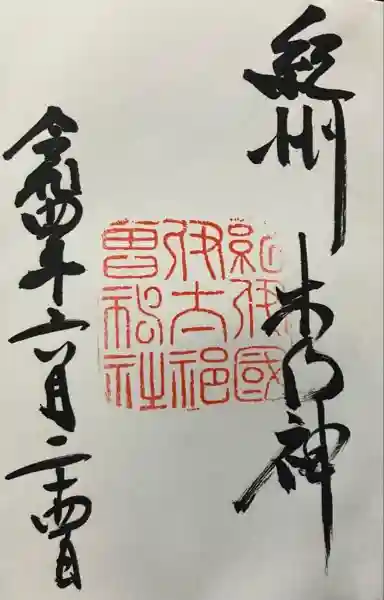 紀州 木の神
紀伊國
伊太祁
曽神社
令和四年六月二十四日